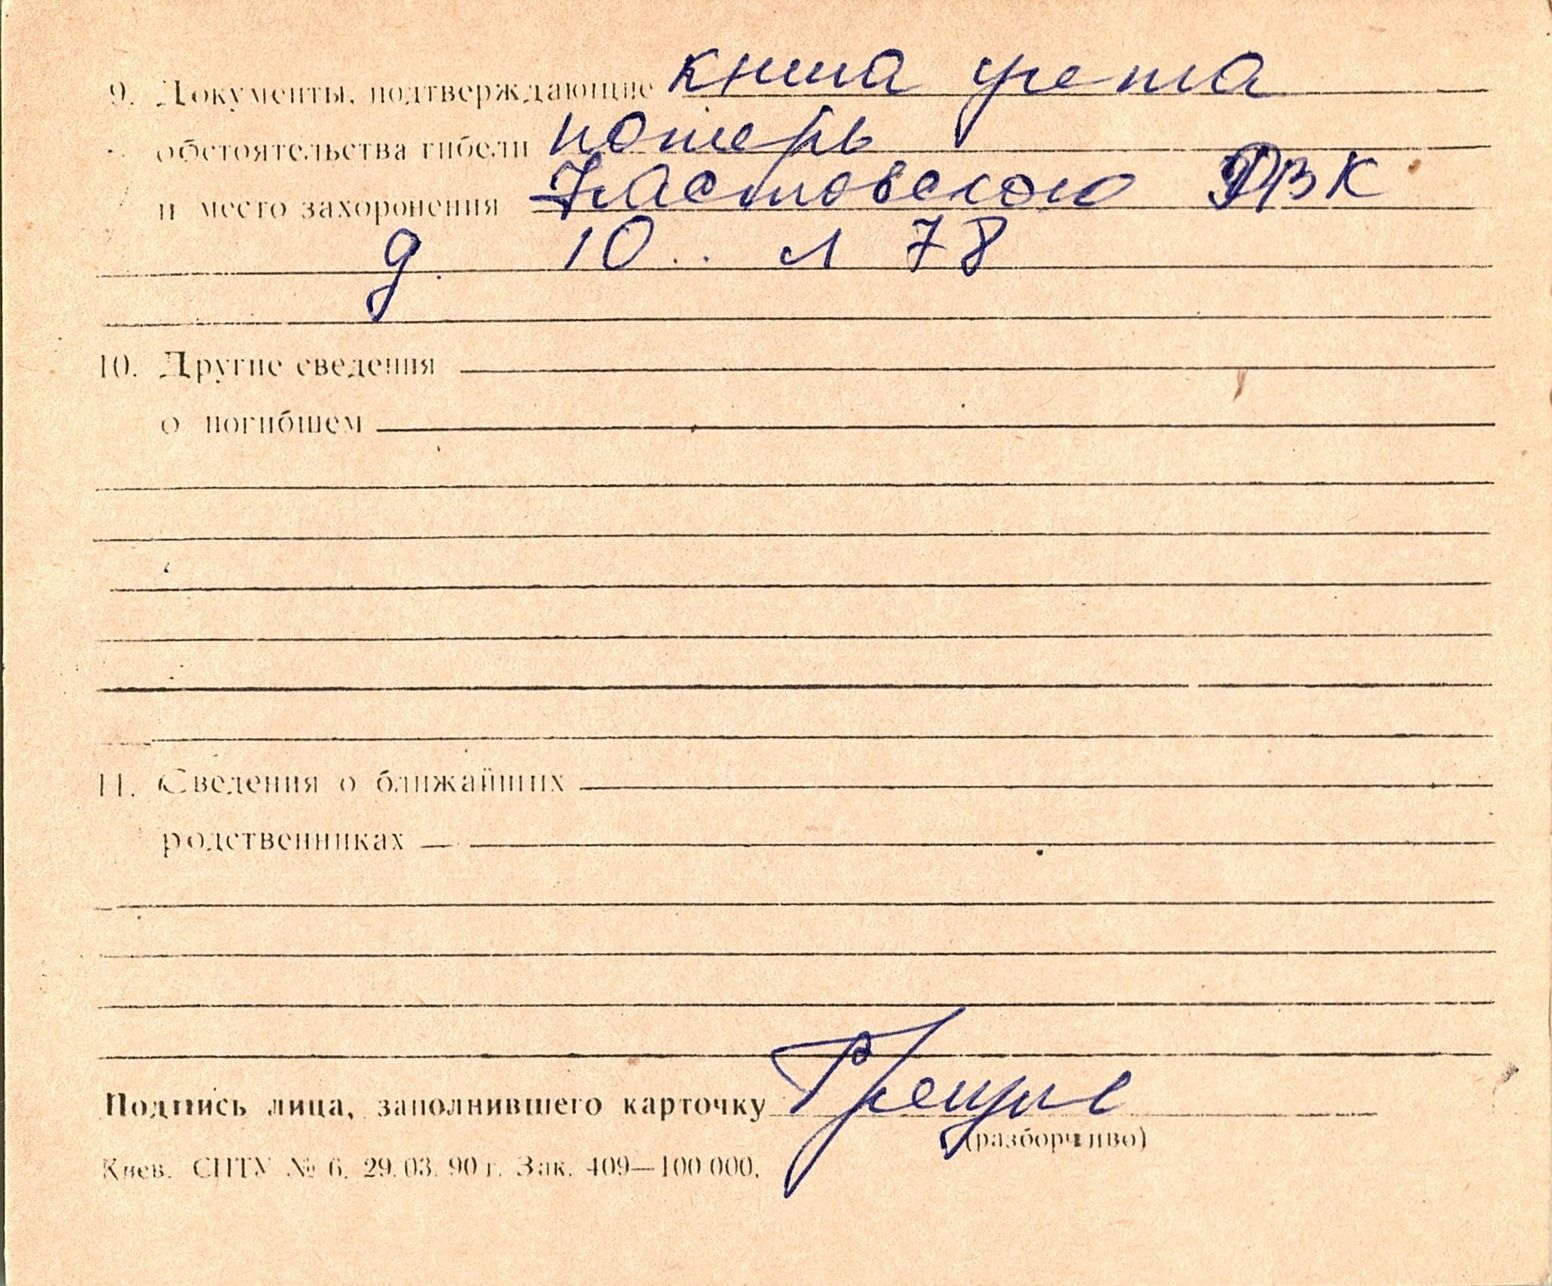 9. Документы, подтверждающие книга учета
обстоятельства гибели потерь
и место захоронения Фастовского РВК
д. 10.. л 78
10. Другие сведения
о погибшем
11. Сведения о ближайших
родственниках
Подпись лица, заполнившего карточку
(разборчиво)
Киев. СПТУ № 6. 29.03.90 г. Зак. 409—100 000.